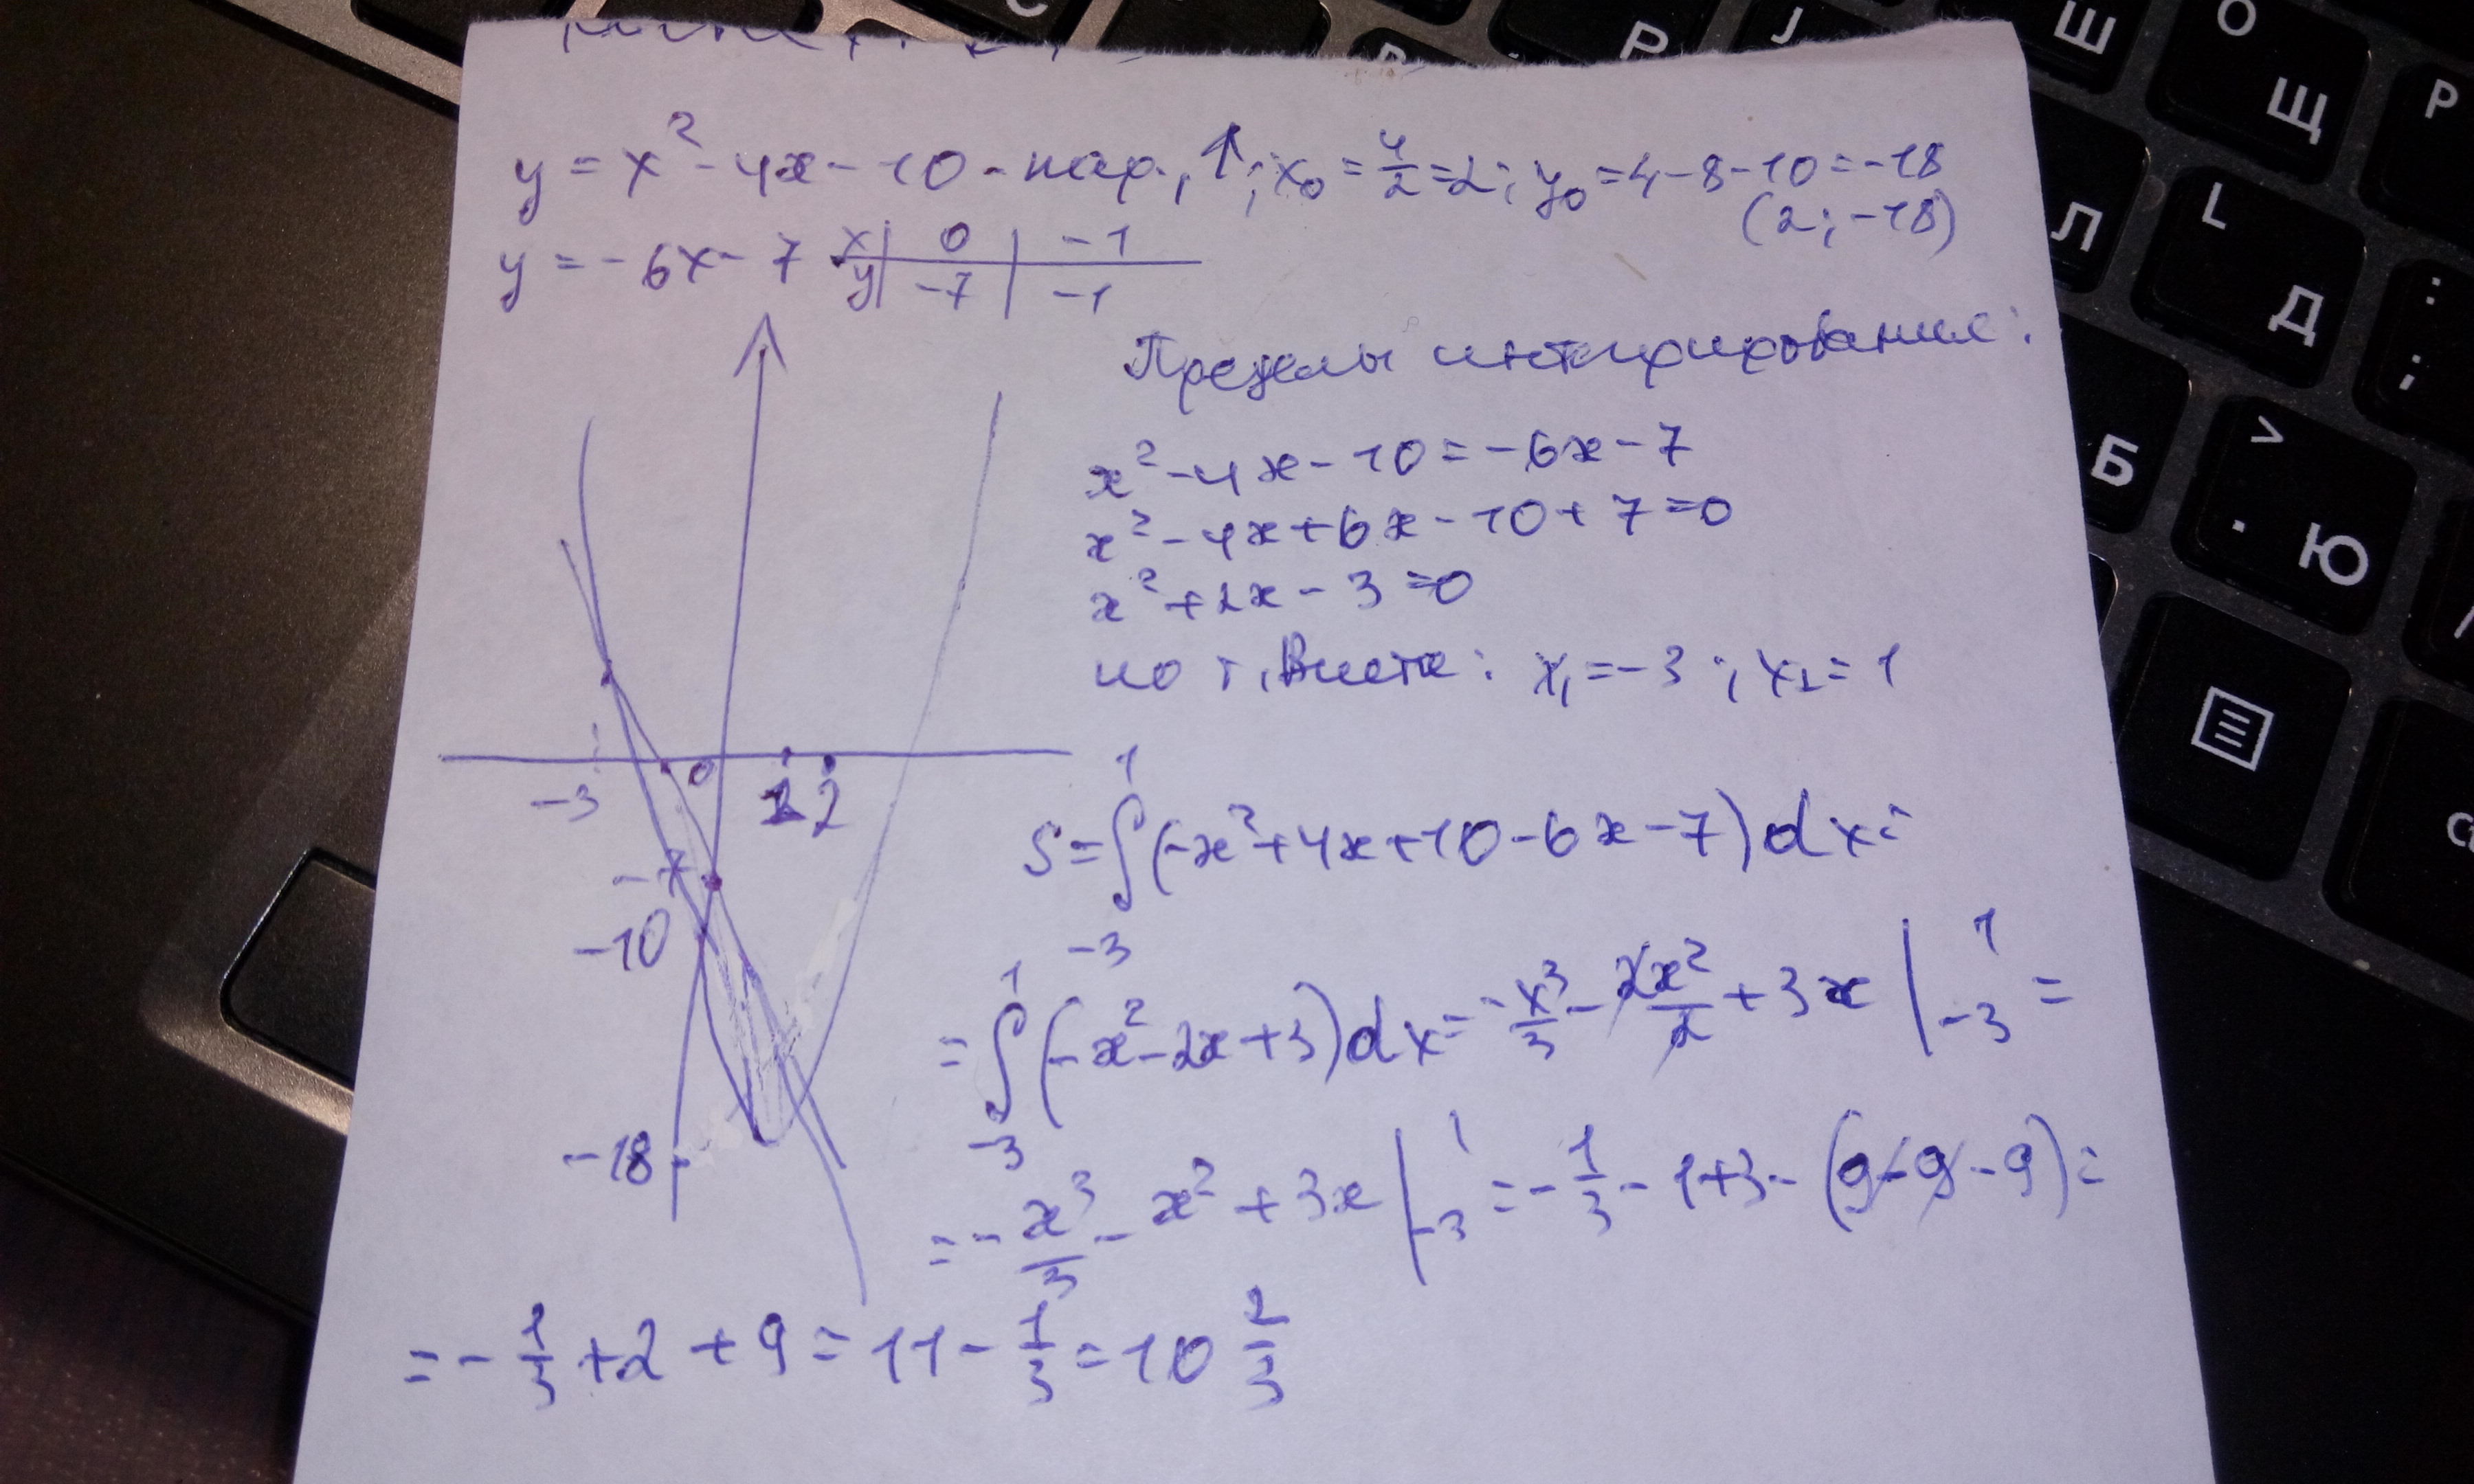 y = x² - 4x - 10 - пар., ↑; x₀ = 4/2 = 2; y₀ = 4 - 8 - 10 = -18
(2; -18)
y = -6x - 7
x | 0 | -1
y | -7 | -1
Пределы интегрирования:
x² - 4x - 10 = -6x - 7
x² - 4x + 6x - 10 + 7 = 0
x² + 2x - 3 = 0
по т. Виета: x₁ = -3; x₂ = 1
-3 0 1 2
-7
-10
-18
S = ∫₋₃¹ (-x² + 4x + 10 - 6x - 7) dx =
= ∫₋₃¹ (-x² - 2x + 3) dx = -x³/3 - 2x²/2 + 3x |₋₃¹ =
= -x³/3 - x² + 3x |₋₃¹ = -1/3 - 1 + 3 - (9 - 9 - 9) =
= -1/3 + 2 + 9 = 11 - 1/3 = 10 2/3
Ш
О
Щ
Р
J
Л
L
Д
:
;
Б
>
.
Ю